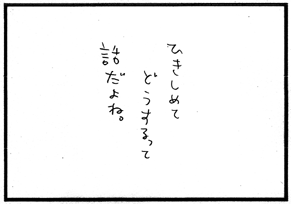 ひきしめて
どうするって
話だよね。